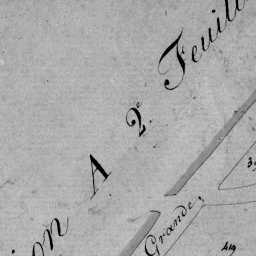 ion A 2e Feuill
Grande,
419